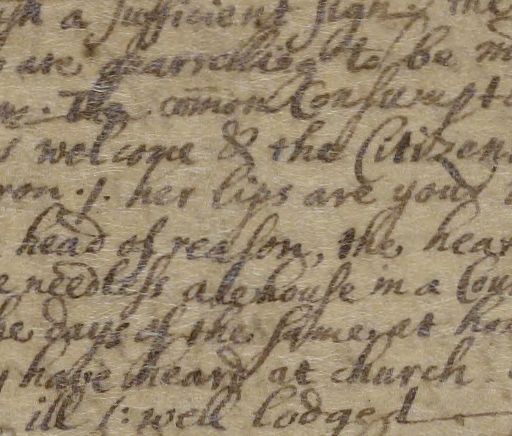 a sufficient sign. the
are quarrelling to be
The com̄on Consumpti
welcome & the Citizen
her lips are your
head of reason, the hear
needless alehouse in a Cou
days of the same at ho
have heard at church.
ill /: well lodged